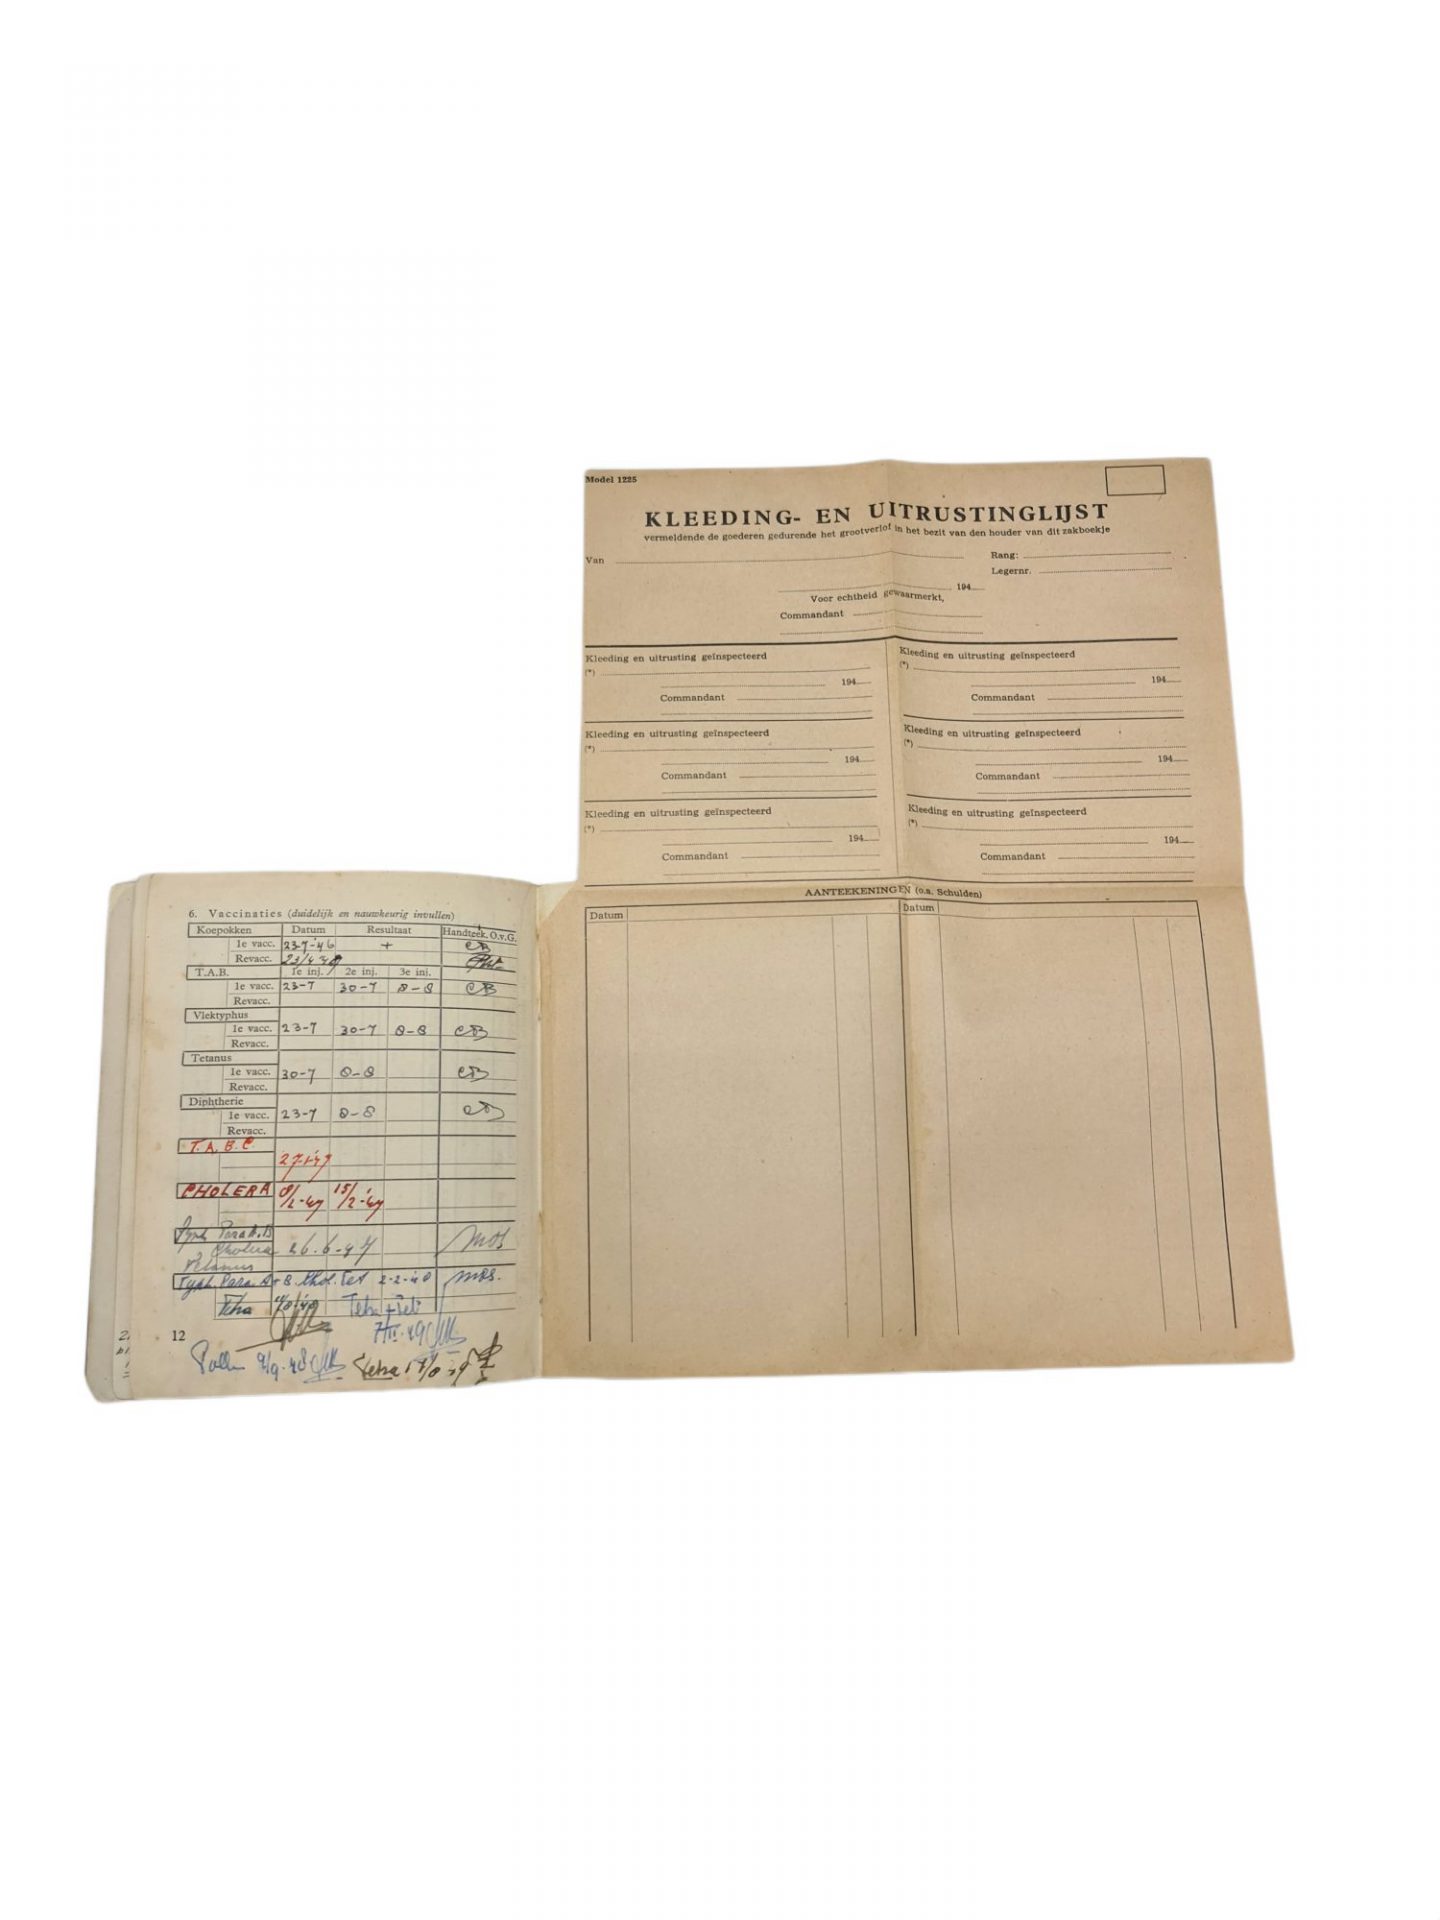 6. Vaccinaties (duidelijk en nauwkeurig invullen)
Koepokken Datum Resultaat Handteek. O.v.G.
1e vacc. 23-7-'46 + CB
Revacc. 23/4 48
T.A.B. 1e inj. 2e inj. 3e inj.
1e vacc. 23-7 30-7 8-8 CB
Revacc.
Vlektyphus
1e vacc. 23-7 30-7 8-8 CB
Revacc.
Tetanus
1e vacc. 30-7 8-8 CB
Revacc.
Diphtherie
1e vacc. 23-7 8-8 CB
Revacc.
T.A.B.C.
27-1-'47
CHOLERA 8/2-47 15/2-'47
Typh. Para A.B
Cholera 26.6-47 mos
Tetanus
Typh. Para. A+B. Chol. Tet 2-2-48 mos.
Tetra
12
9/9-48 Tetra
Model 1225
KLEEDING- EN UITRUSTINGLIJST
vermeldende de goederen gedurende het grootverlof in het bezit van den houder van dit zakboekje
Van Rang:
Legernr.
194
Voor echtheid gewaarmerkt,
Commandant
Kleeding en uitrusting geïnspecteerd
(*)
194
Commandant
Kleeding en uitrusting geïnspecteerd
(*)
194
Commandant
Kleeding en uitrusting geïnspecteerd
(*)
194
Commandant
Kleeding en uitrusting geïnspecteerd
(*)
194
Commandant
Kleeding en uitrusting geïnspecteerd
(*)
194
Commandant
Kleeding en uitrusting geïnspecteerd
(*)
194
Commandant
AANTEEKENINGEN (o.a. Schulden)
Datum Datum